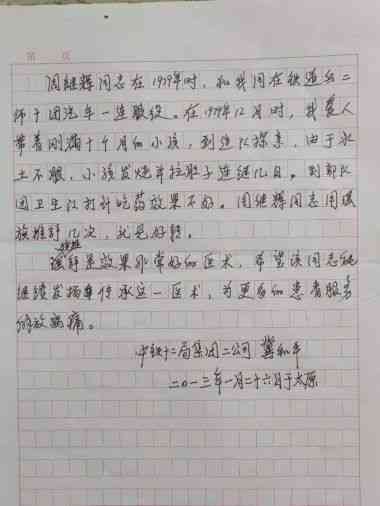 第 页
周继辉同志在1979年时，和我同在铁道兵二
师十团汽车一连服役。在1979年12月时，我爱人
带着刚满十个月的小孩，到连队探亲，由于水
土不服，小孩发烧并拉肚子连续几日。到部队
团卫生队打针吃药效果不好。周继辉同志用
族推针几次，就见好转。
推针是效果非常好的医术，希望该同志能
继续发扬传承这一医术，为更多的患者服务
解放病痛。
中铁十二局集团二公司 和平
二〇一三年一月二十六日于太原